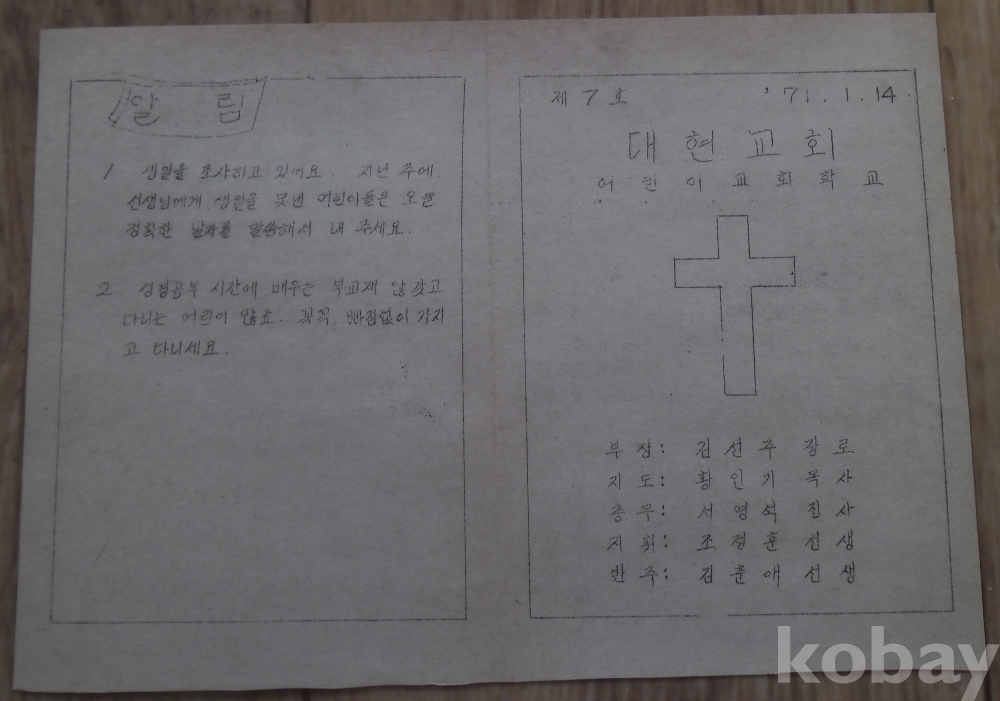 알 림
1 생일을 조사하고 있어요. 지난 주에
선생님에게 생일을 못낸 어린이들은 오늘
정확한 날짜를 말씀해서 내 주세요.
2 성경공부 시간에 배우는 부교재 않 갖고
다니는 어린이 많죠. 꼭꼭, 빠짐없이 가지
고 다니세요.
제 7 호 '71. 1. 14.
대 현 교 회
어 린 이 교 회 학 교
부 장: 김 선 주 장 로
지 도: 황 인 기 목 사
총 무: 서 영 석 집 사
지 휘: 조 정 훈 선 생
반 주: 김 춘 애 선 생
kobay